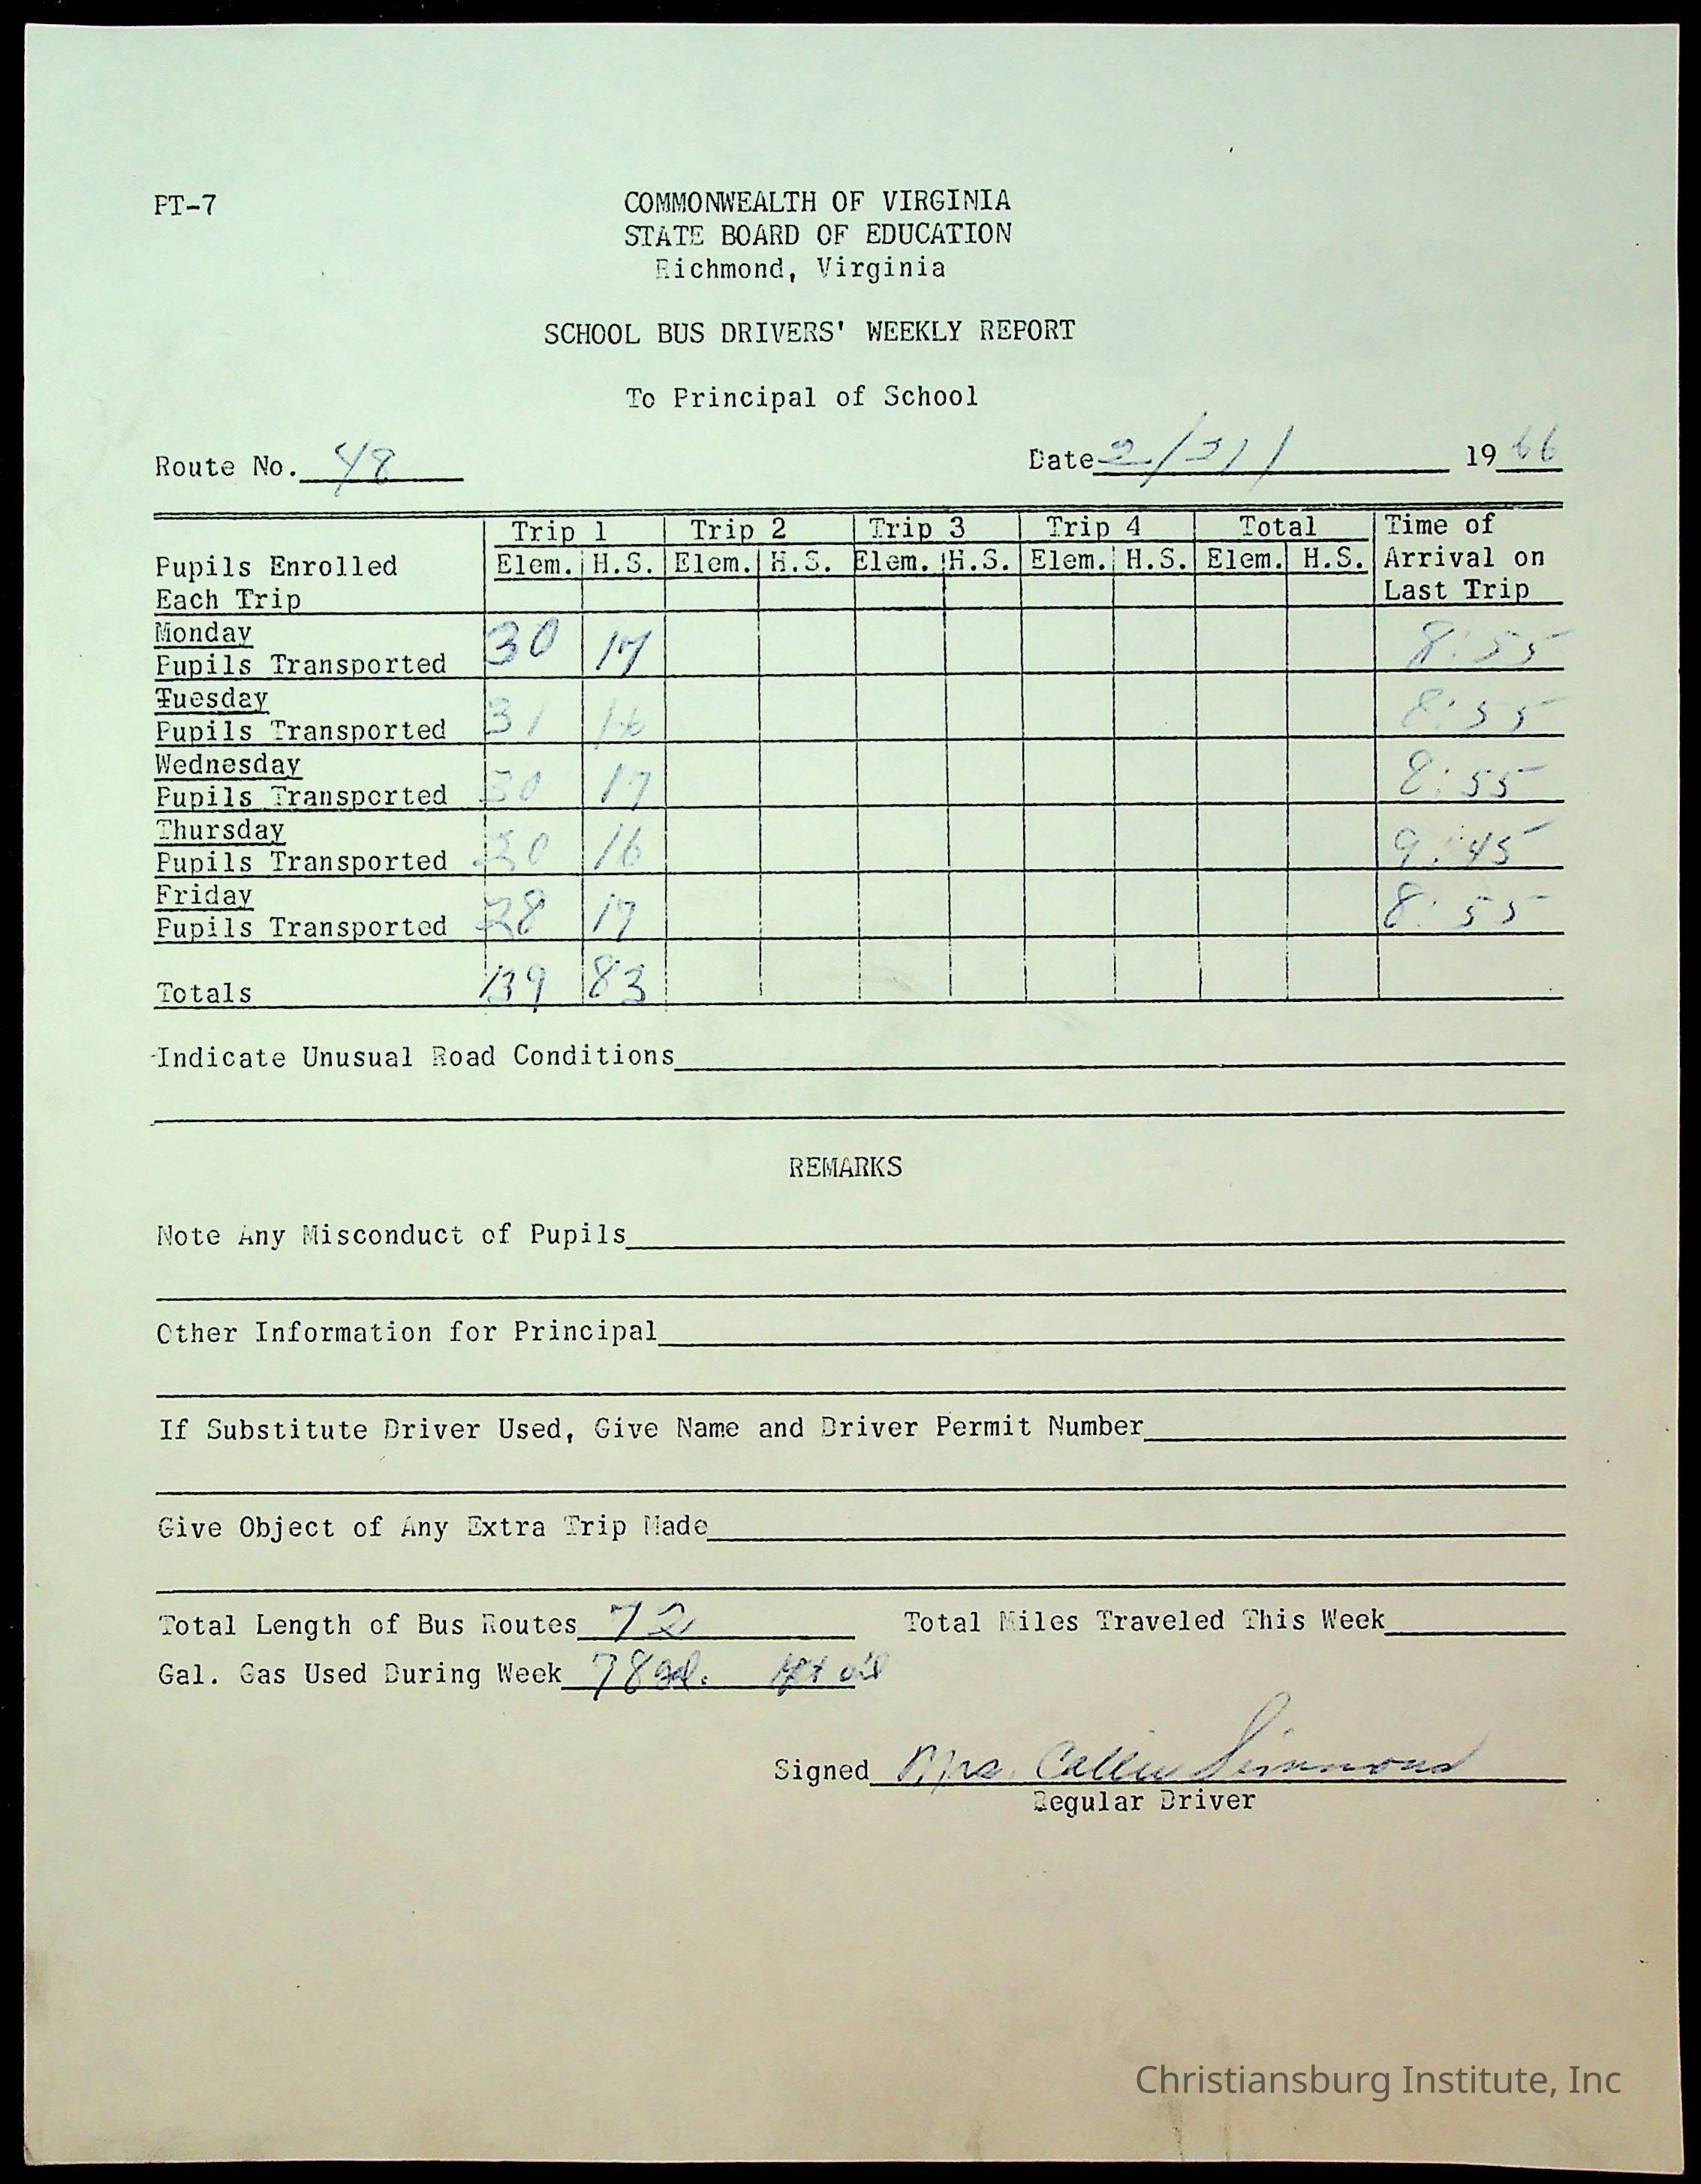 PT-7
COMMONWEALTH OF VIRGINIA
STATE BOARD OF EDUCATION
Richmond, Virginia
SCHOOL BUS DRIVERS' WEEKLY REPORT
To Principal of School
Route No. 48 Date 2/21/ 1966
Trip 1 Trip 2 Trip 3 Trip 4 Total Time of
Pupils Enrolled Elem. H.S. Elem. H.S. Elem. H.S. Elem. H.S. Elem. H.S. Arrival on
Each Trip Last Trip
Monday
Pupils Transported 30 17 8:55
Tuesday
Pupils Transported 31 16 8:55
Wednesday
Pupils Transported 30 17 8:55
Thursday
Pupils Transported 20 16 9:45
Friday
Pupils Transported 28 17 8:55
Totals 139 83
Indicate Unusual Road Conditions
REMARKS
Note Any Misconduct of Pupils
Other Information for Principal
If Substitute Driver Used, Give Name and Driver Permit Number
Give Object of Any Extra Trip Made
Total Length of Bus Routes 72 Total Miles Traveled This Week
Gal. Gas Used During Week 78 gal. oil
Signed Mrs. Callie Simmons
Regular Driver
Christiansburg Institute, Inc